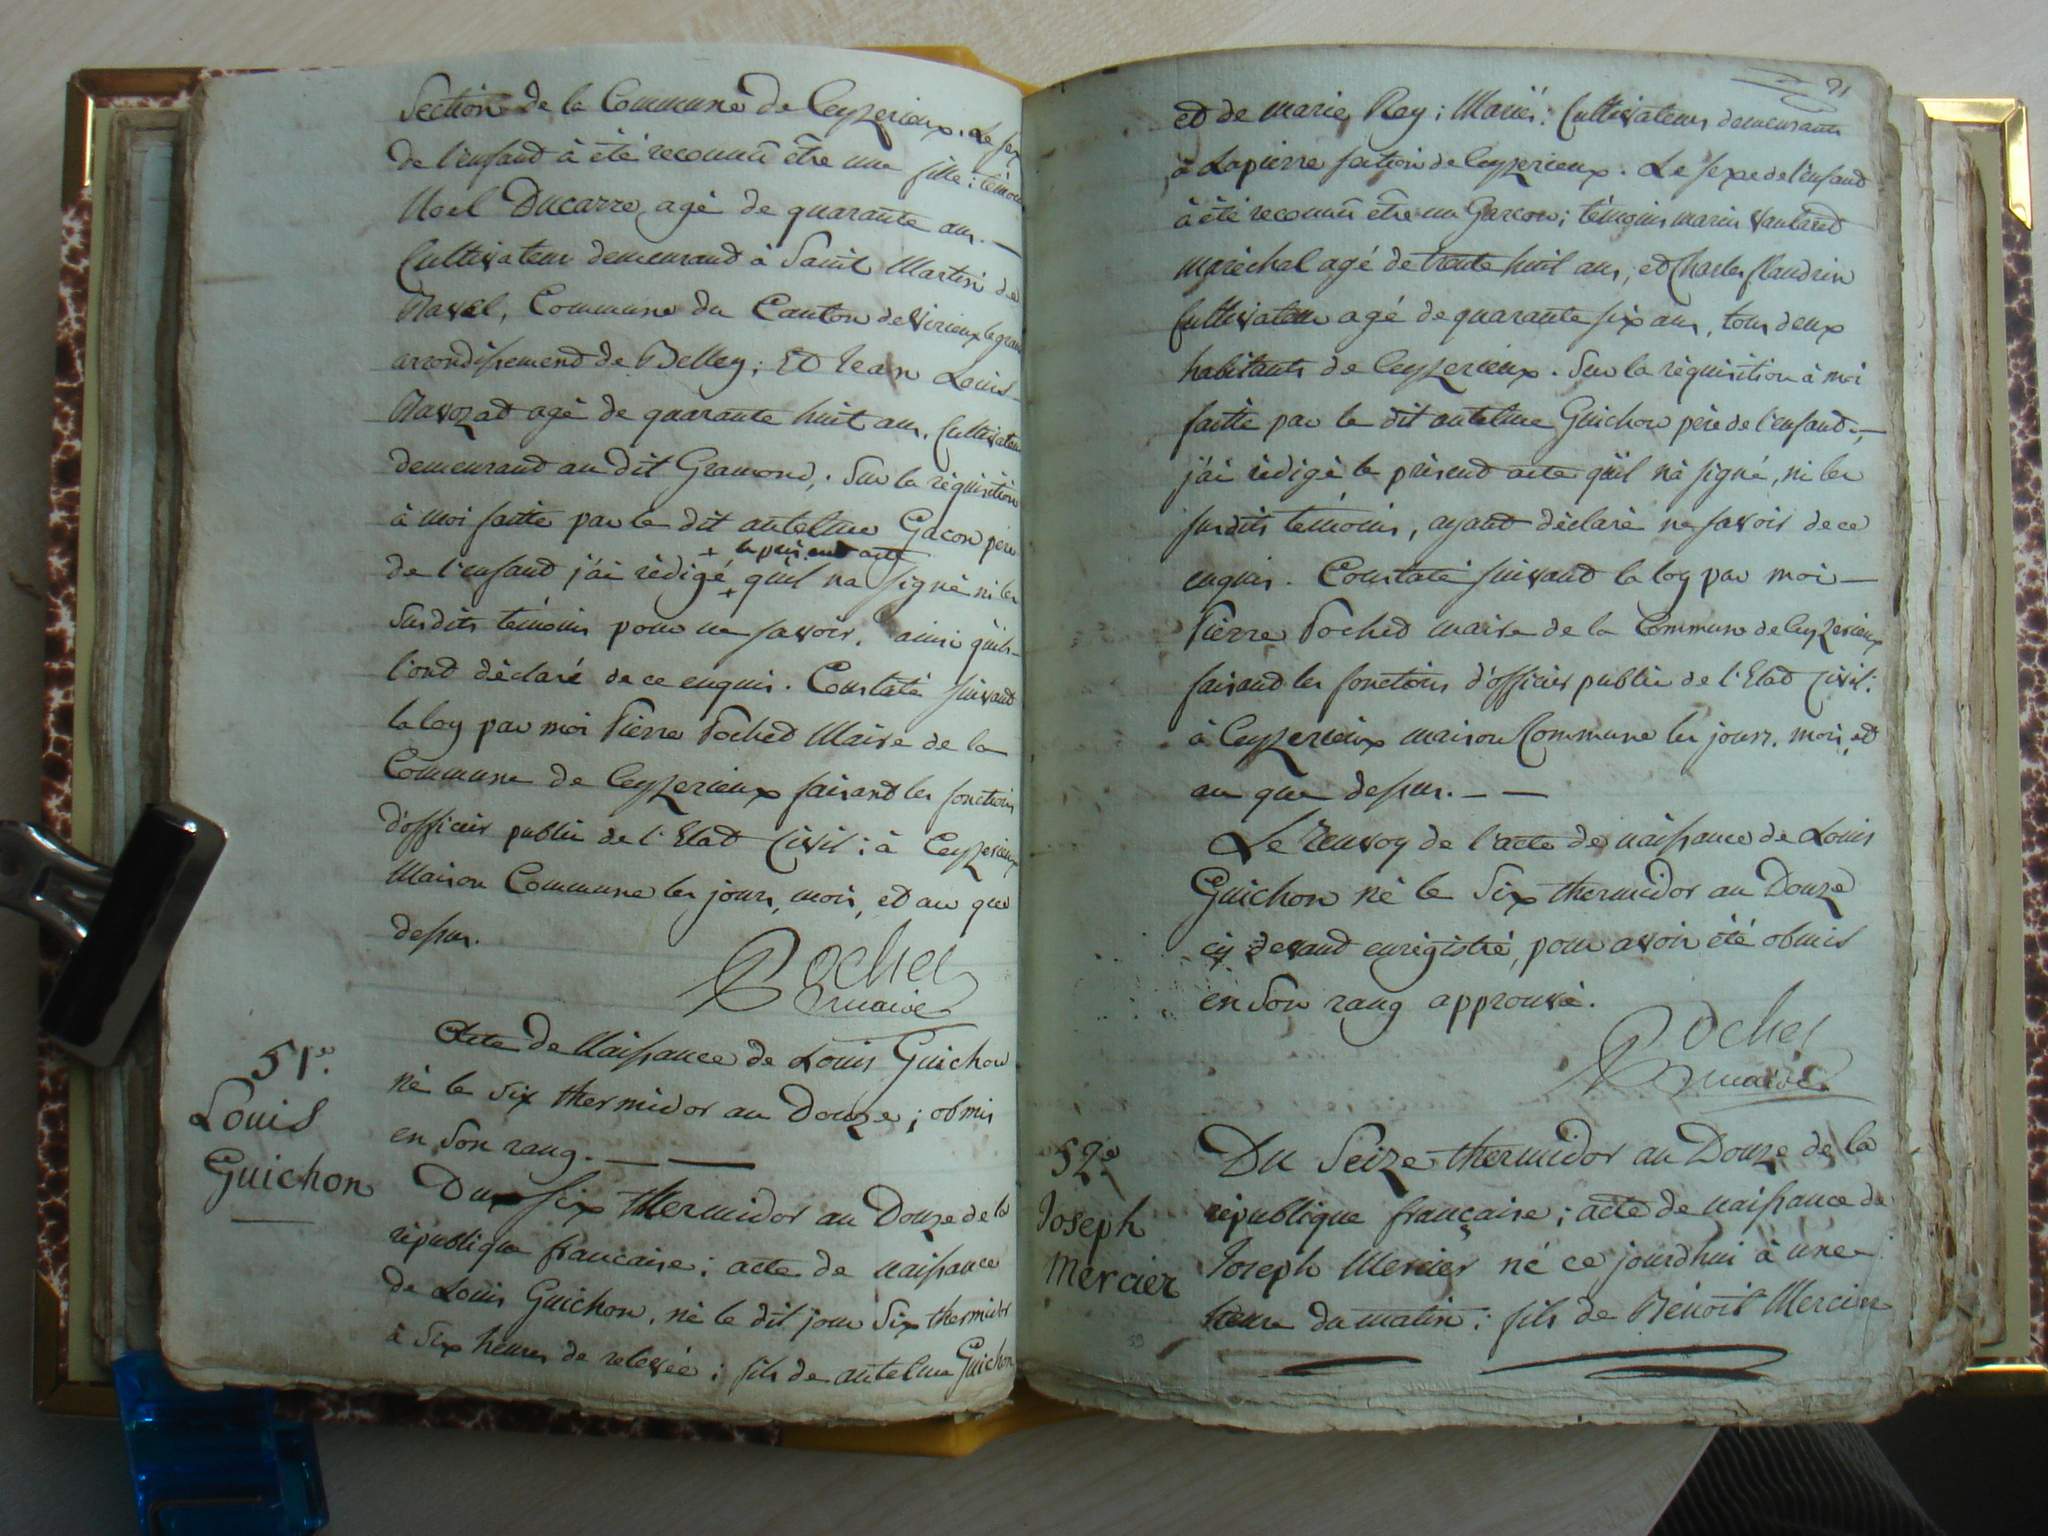 Section de la Commune de Ceyzerieux. Le sex
de l'enfant à été reconnû être une fille; témoin
Noel Ducarre, agé de quarante ans. —
Cultivateur demeurand à Saint Martin de
Bavel, Commune du Canton de Virieux le grand
arrondissement de Belley; Et Jean Louis
Bavozat agé de quarante huit ans, Cultivateur
demeurand au dit Gramond,. Sur la réquisition
à moi faitte par le dit antelme Gacon père
+ le présent acte
de l'enfant j'ai rédigé + qu'il na signé ni les
susdits témoins pour ne savoir, ainsi quils
l'ont déclaré de ce enquis. Constaté suivant
la loy par moi Pierre Pochet Maire de la
Commune de Ceyzerieux faisant les fonctions
d'officier public de l'Etat Civil: à Ceyzerieux
Maison Commune les jours, mois, et an que
dessus.
Pochet
maire
51e.
Louis
Guichon
Acte de Naissance de Louis Guichon
né le six thermidor an Douze; obmis
en Son rang. — —
Du six thermidor an Douze de la
république francaise; acte de naissance
de Louis Guichon, né le dit jour Six thermidor
à Six heures de relevée; fils de antelme Guichon
91
et de marie Rey; Mariés: Cultivateurs demeurants
à Lapierre section de Ceyzerieux. Le sexe de l'enfand
à été reconnû être un Garcon; témoins marin
maréchal agé de trente huit ans, et Charles flandrin
Cultivateur agé de quarante six ans, tous deux
habitants de Ceyzerieux. Sur la réquisition à moi
faitte par le dit antelme Guichon père de l'enfand, —
j'ai rédigé le présend acte qu'il nà signé, ni les
susdits témoins, ayand déclaré ne savoir de ce
enquis. Constaté suivand la loy par moi —
Pierre Pochet maire de la Commune de Ceyzerieux
faisand les fonctions d'officier public de l'Etat Civil:
à Ceyzerieux maison Commune les jours, mois, et
an que dessus. — —
Le renvoy de l'acte de naissance de Louis
Guichon né le Six thermidor an Douze
cy devand enrégistré, pour avoir été obmis
en Son rang approuvé.
Pochet
maire
52e
Joseph
Mercier
Du Seize thermidor an Douze de la
république française; acte de naissance de
Joseph Mercier né ce jourdhui à une
heure du matin; fils de Bénoit Mercier
59